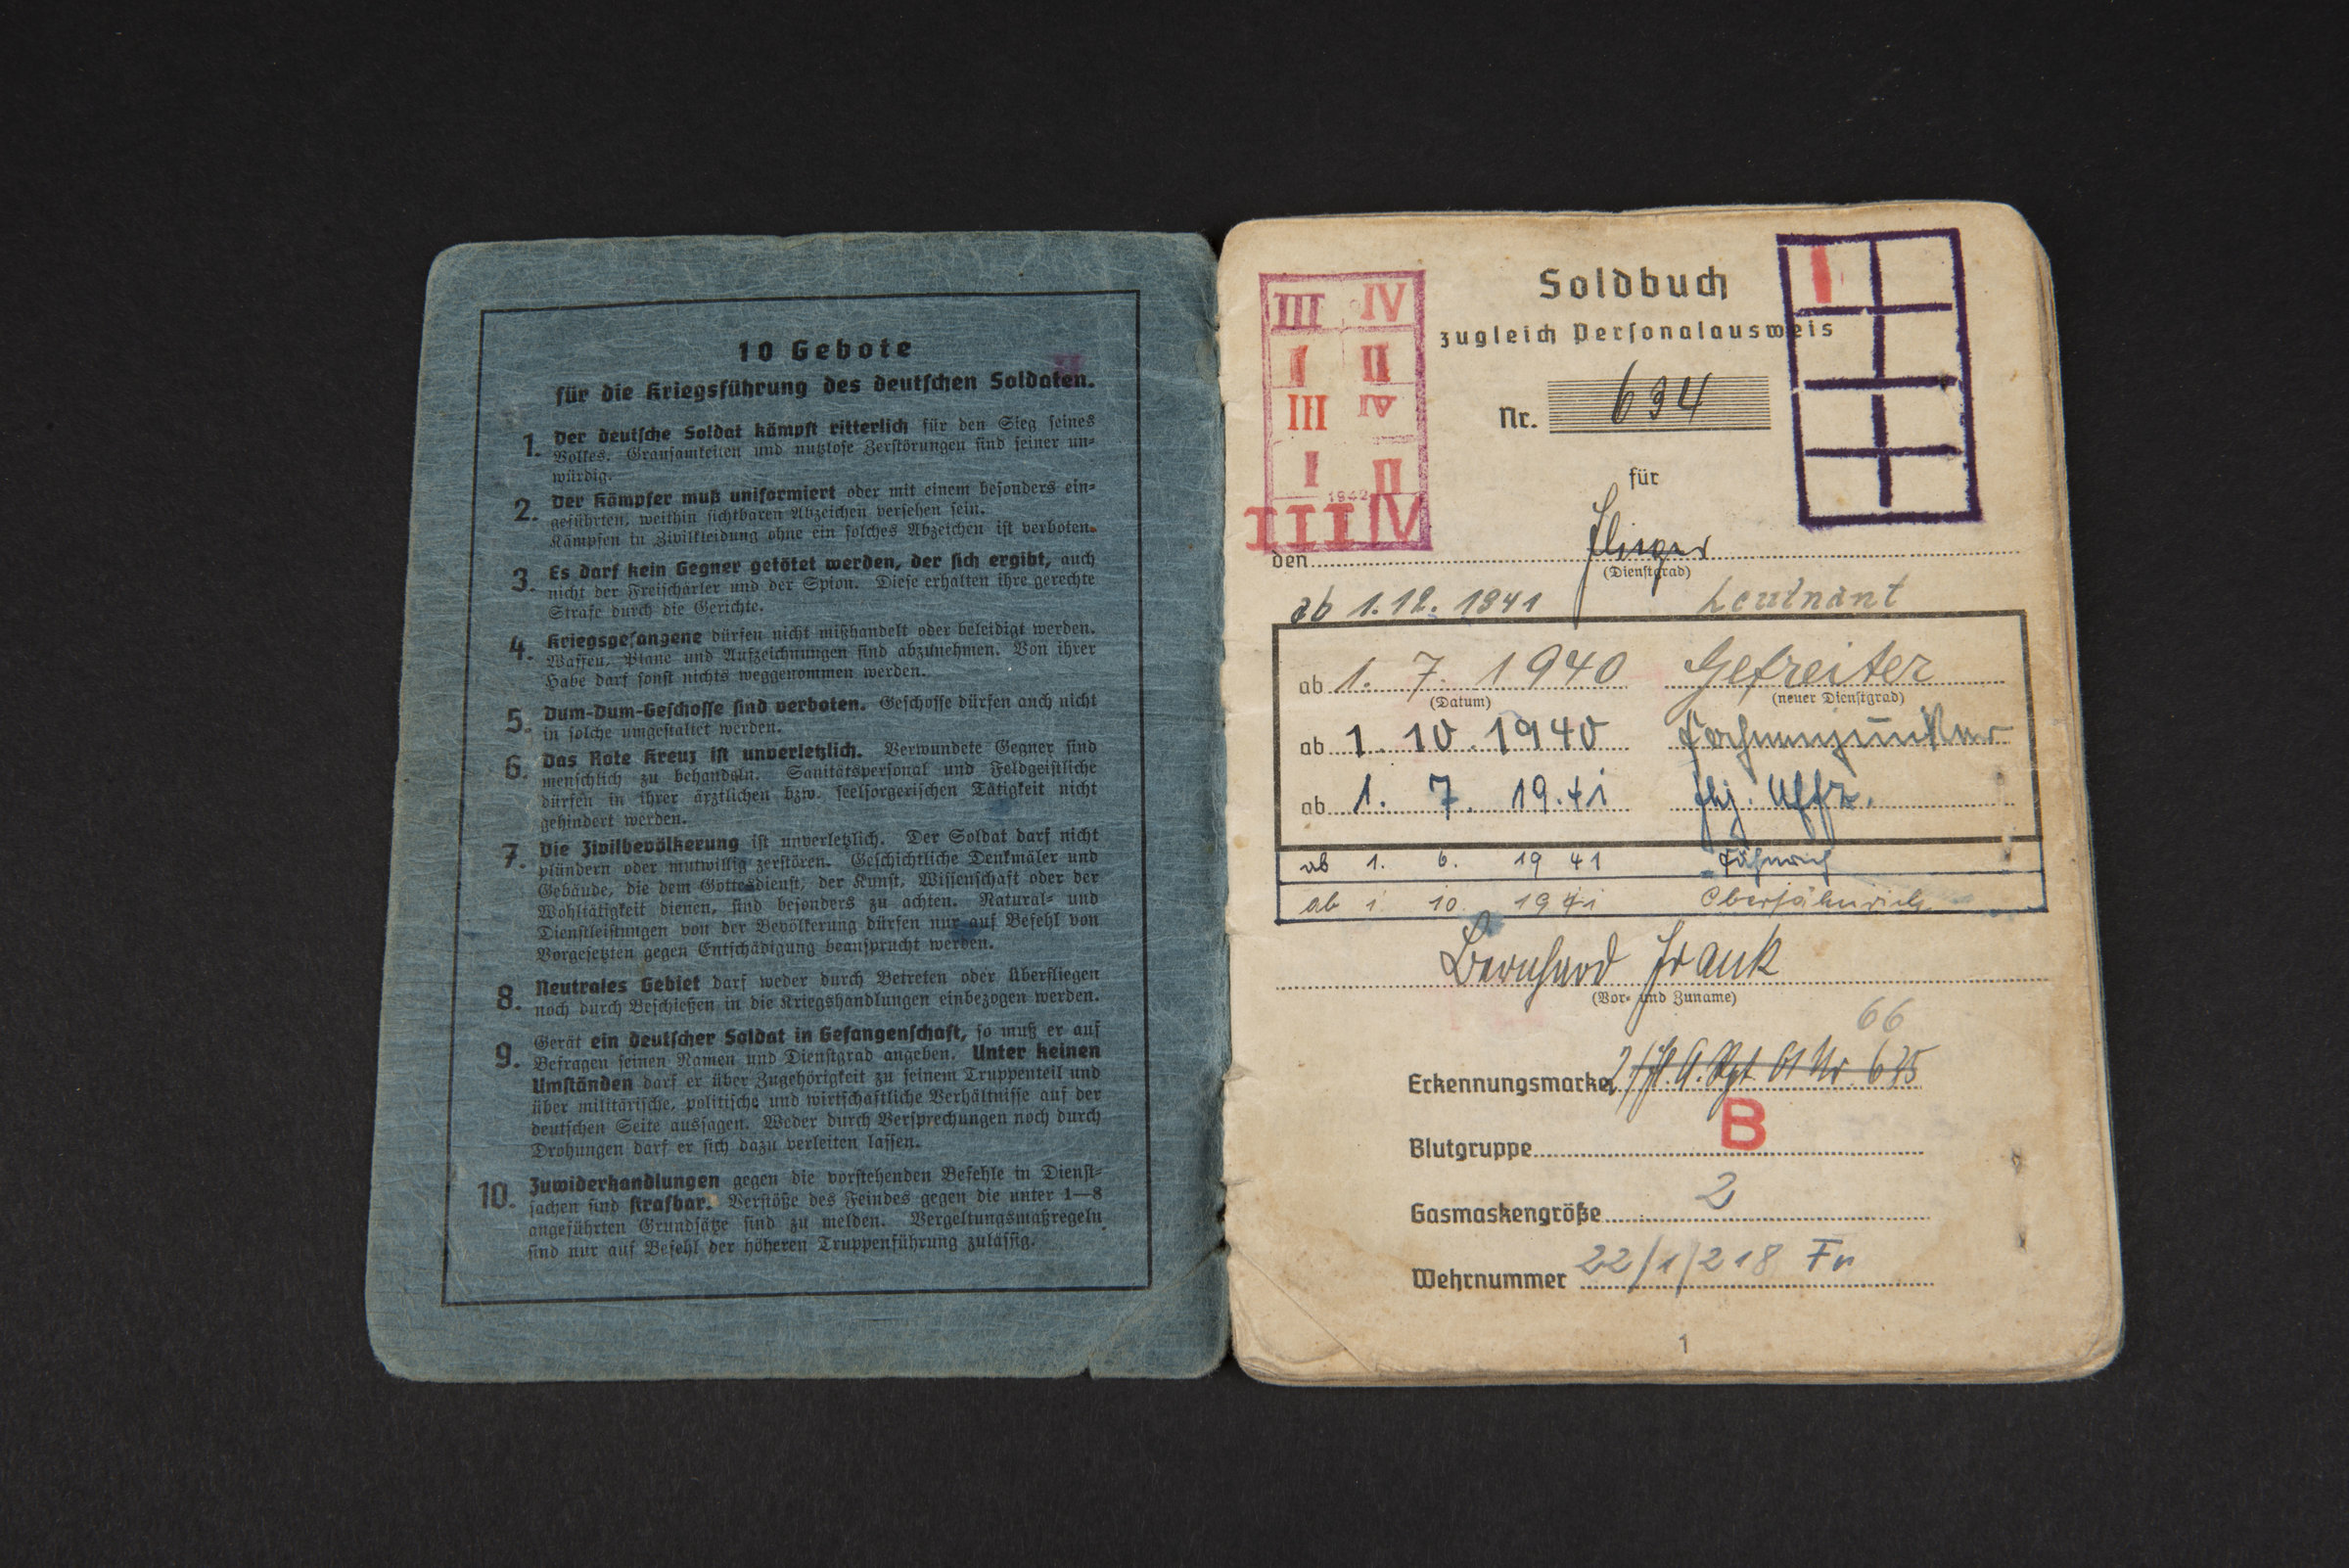 10 Gebote
für die Kriegsführung des deutschen Soldaten.
1. Der deutsche Soldat kämpft ritterlich für den Sieg seines
Volkes. Grausamkeiten und nutzlose Zerstörungen sind seiner un-
würdig.
2. Der Kämpfer muß uniformiert oder mit einem besonders ein-
geführten, weithin sichtbaren Abzeichen versehen sein.
Kämpfen in Zivilkleidung ohne ein solches Abzeichen ist verboten.
3. Es darf kein Gegner getötet werden, der sich ergibt, auch
nicht der Freischärler und der Spion. Diese erhalten ihre gerechte
Strafe durch die Gerichte.
4. Kriegsgefangene dürfen nicht mißhandelt oder beleidigt werden.
Waffen, Pläne und Aufzeichnungen sind abzunehmen. Von ihrer
Habe darf sonst nichts weggenommen werden.
5. Dum-Dum-Geschosse sind verboten. Geschosse dürfen auch nicht
in solche umgestaltet werden.
6. Das Rote Kreuz ist unverletzlich. Verwundete Gegner sind
menschlich zu behandeln. Sanitätspersonal und Feldgeistliche
dürfen in ihrer ärztlichen bzw. seelsorgerischen Tätigkeit nicht
gehindert werden.
7. Die Zivilbevölkerung ist unverletzlich. Der Soldat darf nicht
plündern oder mutwillig zerstören. Geschichtliche Denkmäler und
Gebäude, die dem Gottesdienst, der Kunst, Wissenschaft oder der
Wohltätigkeit dienen, sind besonders zu achten. Natural- und
Dienstleistungen von der Bevölkerung dürfen nur auf Befehl von
Vorgesetzten gegen Entschädigung beansprucht werden.
8. Neutrales Gebiet darf weder durch Betreten oder Überfliegen
noch durch Beschießen in die Kriegshandlungen einbezogen werden.
9. Gerät ein deutscher Soldat in Gefangenschaft, so muß er auf
Befragen seinen Namen und Dienstgrad angeben. Unter keinen
Umständen darf er über Zugehörigkeit zu seinem Truppenteil und
über militärische, politische und wirtschaftliche Verhältnisse auf der
deutschen Seite aussagen. Weder durch Versprechungen noch durch
Drohungen darf er sich dazu verleiten lassen.
10. Zuwiderhandlungen gegen die vorstehenden Befehle in Dienst-
sachen sind strafbar. Verstöße des Feindes gegen die unter 1—8
angeführten Grundsätze sind zu melden. Vergeltungsmaßregeln
sind nur auf Befehl der höheren Truppenführung zulässig.
III IV
I II
III IV
I II
1942
III IV
I
Soldbuch
zugleich Personalausweis
Nr. 634
für
den Flieger
(Dienstgrad)
ab 1.12.1941 Leutnant
ab 1. 7. 1940 Gefreiter
(Datum) (neuer Dienstgrad)
ab 1. 10. 1940 Fahnenjunker
ab 1. 7. 19.41 Fhj. Uffz.
ab 1. 6. 19 41 Fähnrich
ab 1. 10. 1941 Oberfähnrich
Bernhard Frank
(Vor- und Zuname)
66
Erkennungsmarke
Blutgruppe B
Gasmaskengröße 2
Wehrnummer 22/1/218 Fn
1